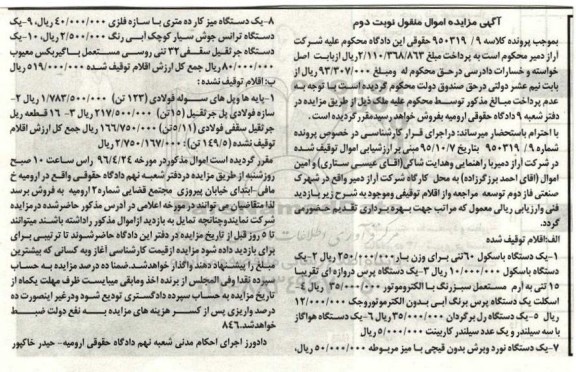 آگهی مزایده اموال منقول نوبت دوم
بموجب پرونده کلاسه ۹/ ۹۵۰۳۱۹ حقوقی این دادگاه محکوم علیه شرکت
آراز دمیر محکوم است به پرداخت مبلغ ۲/۱۱۰/۳۶۸/۸۶۳ ریال ازبابت اصل
خواسته و خسارات دادرسی در حق محکوم له ومبلغ ۹۳/۳۰۷/۰۰۰ ریال از
بابت نیم عشر دولتی درحق صندوق دولت محکوم گردیده است با توجه به
عدم پرداخت مبالغ مذکور توسط محکوم علیه ملک ذیل از طریق مزایده در
دفتر شعبه ۹ دادگاه حقوقی ارومیه بفروش خواهد رسیدمقرر گردیده است.
با احترام باستحضار میرساند: دراجرای قرار کارشناسی در خصوص پرونده
شماره ۹/ ۹۵۰۳۱۹ بتاریخ ۹۵/۱۰/۷ مبنی بر ارزشیابی اموال توقیف شده
در شرکت آراز دمیربا راهنمایی وهدایت شاکی(اقای عیسی ستاری) و امین
اموال (اقای احمد برزگرزاده) به محل کارگاه شرکت آراز دمیر واقع در شهرک
صنعتی فازدوم توسعه مراجعه واز اقلام توقیفی وموجود به شرح زیربازدید
فنی وارزیابی ریالی معمول که مراتب جهت بهره برداری تقدیم حضورمی
گردد.
الف:اقلام توقیف شده
۱-یک دستگاه باسکول ۶۰تنی برای وزن بار ۲۵۰/۰۰۰/۰۰۰ ریال ۲-یک
دستگاه باسکول ۱۰/۰۰۰/۰۰۰ ریال ۳-یک دستگاه پرس دروازه ای تقریبا
۱۵ تنی به ارم مستعمل سبزرنگ با الکتروموتور ۳۵/۰۰۰/۰۰۰ ریال ۴-
اسکلت یک دستگاه پرس برنگ آبی بدون الکتروموتوروجک ۱۲/۰۰۰/۰۰۰
ریال ۵-یک دستگاه رل برگردان ۳۵/۰۰۰/۰۰۰ ریال ۶-یک دستگاه هواگاز
با سه سیلندر و یک عدد سیلندر کاربینت ۵/۰۰۰/۰۰۰ ریال
۷-یک دستگاه نورد وبرش بدون قیچی با میز مربوطه ۵۰/۰۰۰/۰۰۰ ریال،
۸-یک دستگاه میز کار ده متری با سازه فلزی ۴۰/۰۰۰/۰۰۰ ریال، ۹-یک
دستگاه ترانس جوش سیار کوچک آبی رنگ ۲/۵۰۰/۰۰۰ ریال، ۱۰-یک
دستگاه جرثقیل سقفی ۳۲ تنی روسی مستعمل باگیربکس معیوب
۸۰/۰۰۰/۰۰۰ ریال جمع کل ارزش اقلام توقیف شده ۵۱۹/۰۰۰/۰۰۰ ریال
ب:اقلام توقیف نشده :
۱-پایه ها وپل های سوله فولادی (۱۲۳ تن) ۱/۷۸۳/۵۰۰/۰۰۰ ریال ۲-
سازه فولادی پل جرثقیل (۱۵تن) ۲۱۷/۵۰۰/۰۰۰ ریال ۳- ۱۶ قطعه ریل
جرثقیل سقفی فولادی (۱۱/۵تن) ۱۶۶/۷۵۰/۰۰۰ ریال جمع کل ارزش اقلام
توقیف نشده (۱۴۹/۵تن): ۲/۷۵۰/۱۶۷/۰۰۰ ریال.
مقرر گردیده است اموال مذکوردر مورخه ۹۶/۴/۲۴ راس ساعت ۱۰ صبح
روزشنبه از طریق مزایده دردفتر شعبه نهم دادگاه حقوقی واقع در ارومیه خ
مافی-ابتدای خیابان پیروزی مجتمع قضایی شماره۲ ارومیه به فروش برسد
لذا متقاضیان می توانند در مورخه اعلامی در آدرس مذکور حاضر شده در مزایده
شرکت نمایندوچنانچه تمایل به بازدید ازاموال مذکور راداشته باشند میتوانند
تا ۵ روز قبل از تاریخ مزایده در دفتر این دادگاه حاضرشوند تا ترتیبی برای
برای بازدید داده شود مزایده ازقیمت کارشناسی آغاز وبه کسانی که بیشترین
مبلغ را پیشنهاد دهند واگذار خواهدشد.ضمنا ده درصد مزایده به حساب
سپرده نقدا وفی المجلس از برنده اخذ ومابقی میبایست ظرف مهلت یکماه از
تاریخ مزایده به حساب سپرده دادگستری تودیع شود ودرغیر اینصورت ده
درصد واریزی پس از کسر هزینه های مزایده به نفع دولت ضبط
خواهدشد.۸۴۶
دادورز اجرای احکام مدنی شعبه نهم دادگاه حقوقی ارومیه- حیدر خاکپور